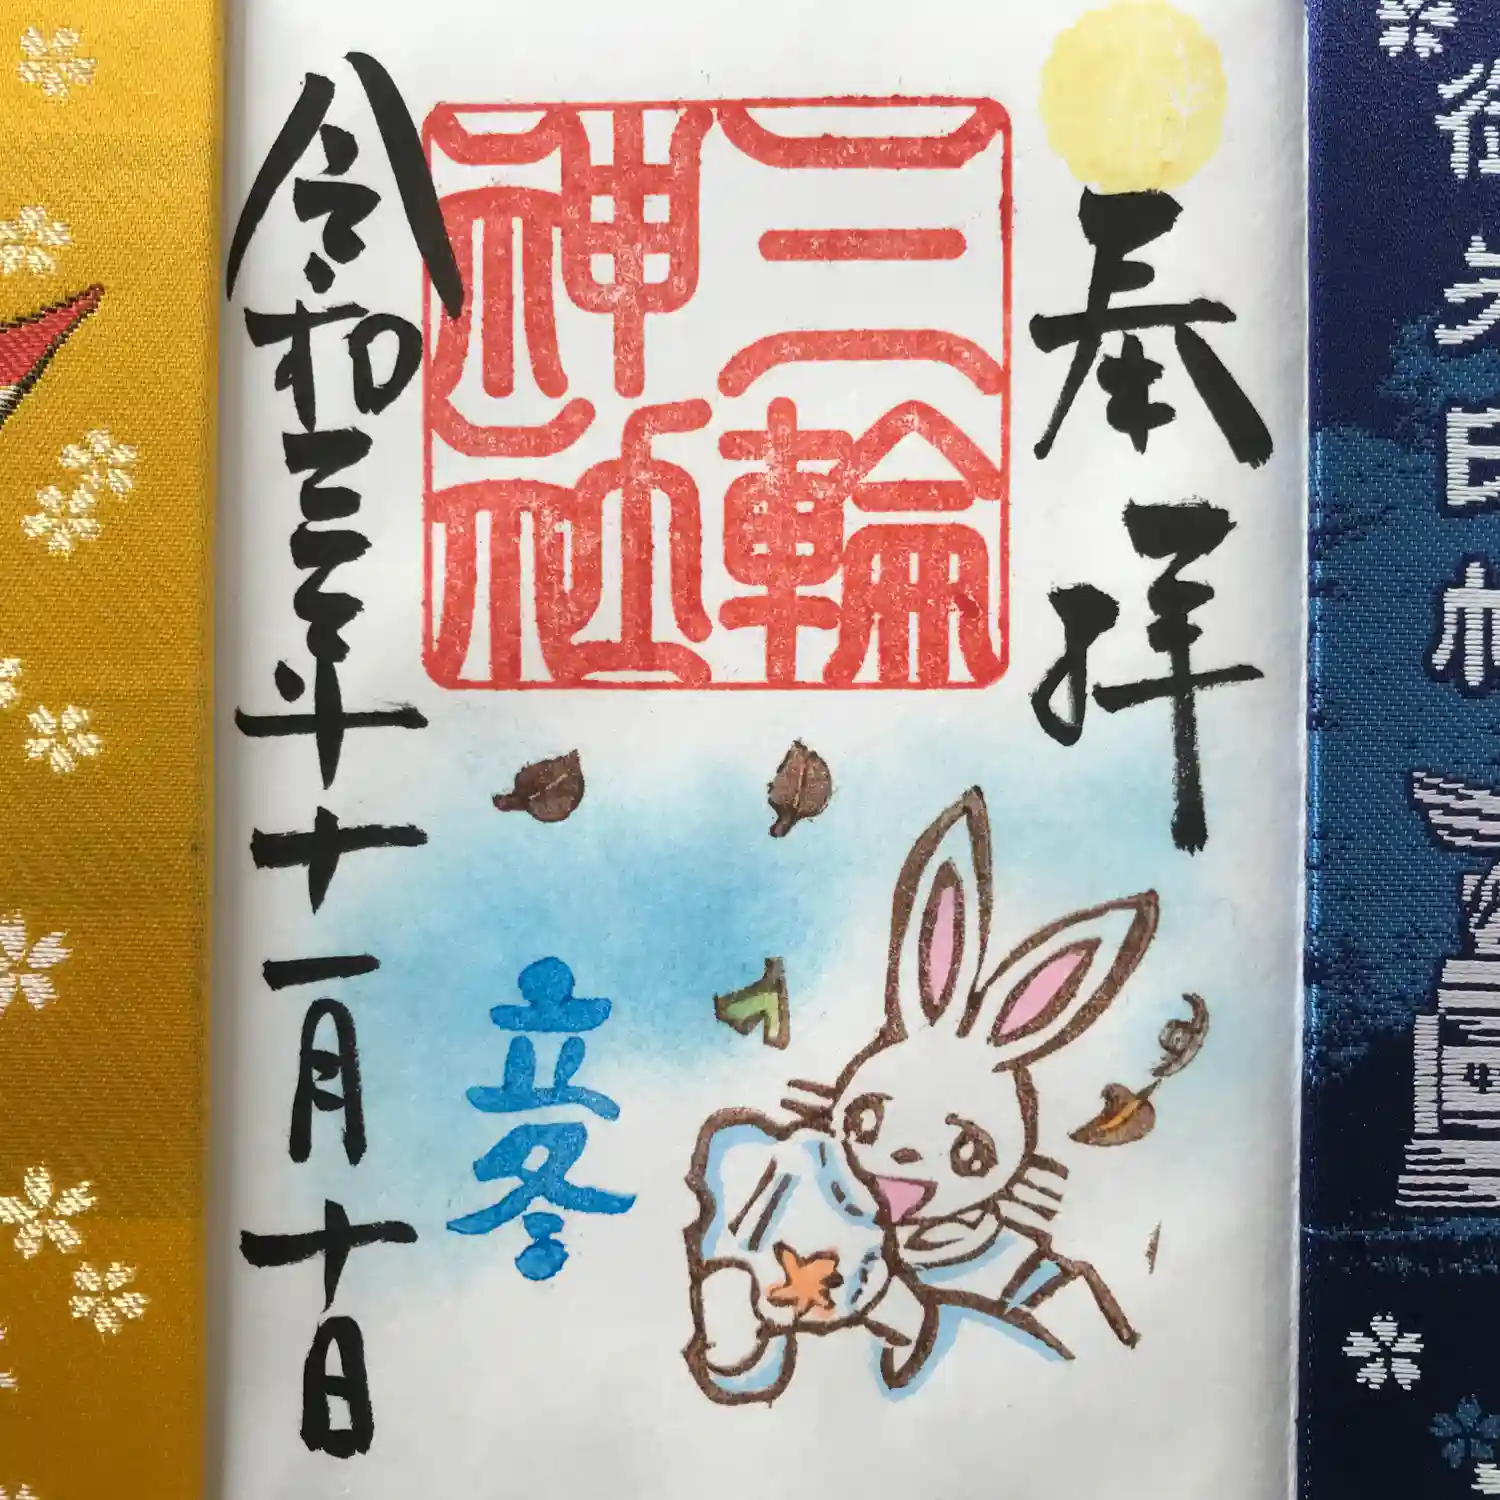 奉拝
三輪
神社
立冬
令和三年十一月十日